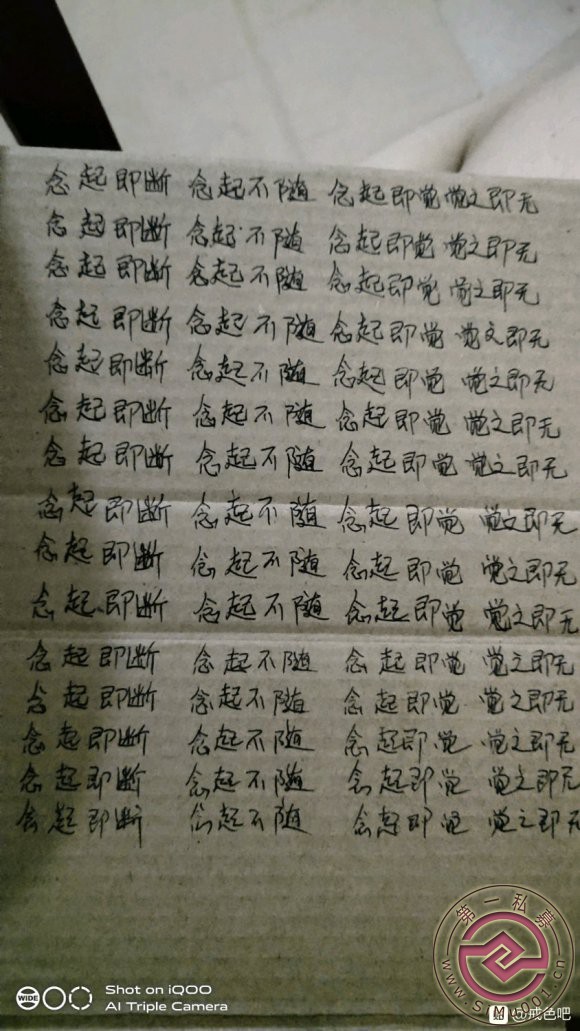 念起即断 念起不随 念起即觉 觉之即无
念起即断 念起不随 念起即觉 觉之即无
念起即断 念起不随 念起即觉 觉之即无
念起即断 念起不随 念起即觉 觉之即无
念起即断 念起不随 念起即觉 觉之即无
念起即断 念起不随 念起即觉 觉之即无
念起即断 念起不随 念起即觉 觉之即无
念起即断 念起不随 念起即觉 觉之即无
念起即断 念起不随 念起即觉 觉之即无
念起即断 念起不随 念起即觉 觉之即无
念起即断 念起不随 念起即觉 觉之即无
念起即断 念起不随 念起即觉 觉之即无
念起即断 念起不随 念起即觉 觉之即无
念起即断 念起不随 念起即觉 觉之即无
念起即断 念起不随 念起即觉 觉之即无
第一私募
WIDE
Shot on iQOO
AI Triple Camera
@戒色吧